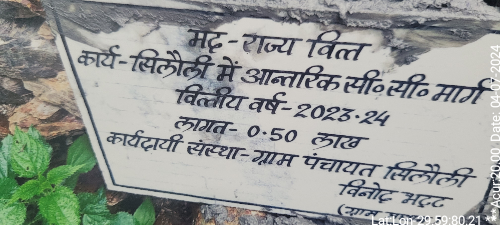 मद - राज्य वित्त
कार्य - सिलौली में आन्तरिक सी० सी० मार्ग
वित्तीय वर्ष - 2023-24
लागत - 0.50 लाख
कार्यदायी संस्था - ग्राम पंचायत सिलौली
विनोद भट्ट
Lat Lon: 29.59.80.21